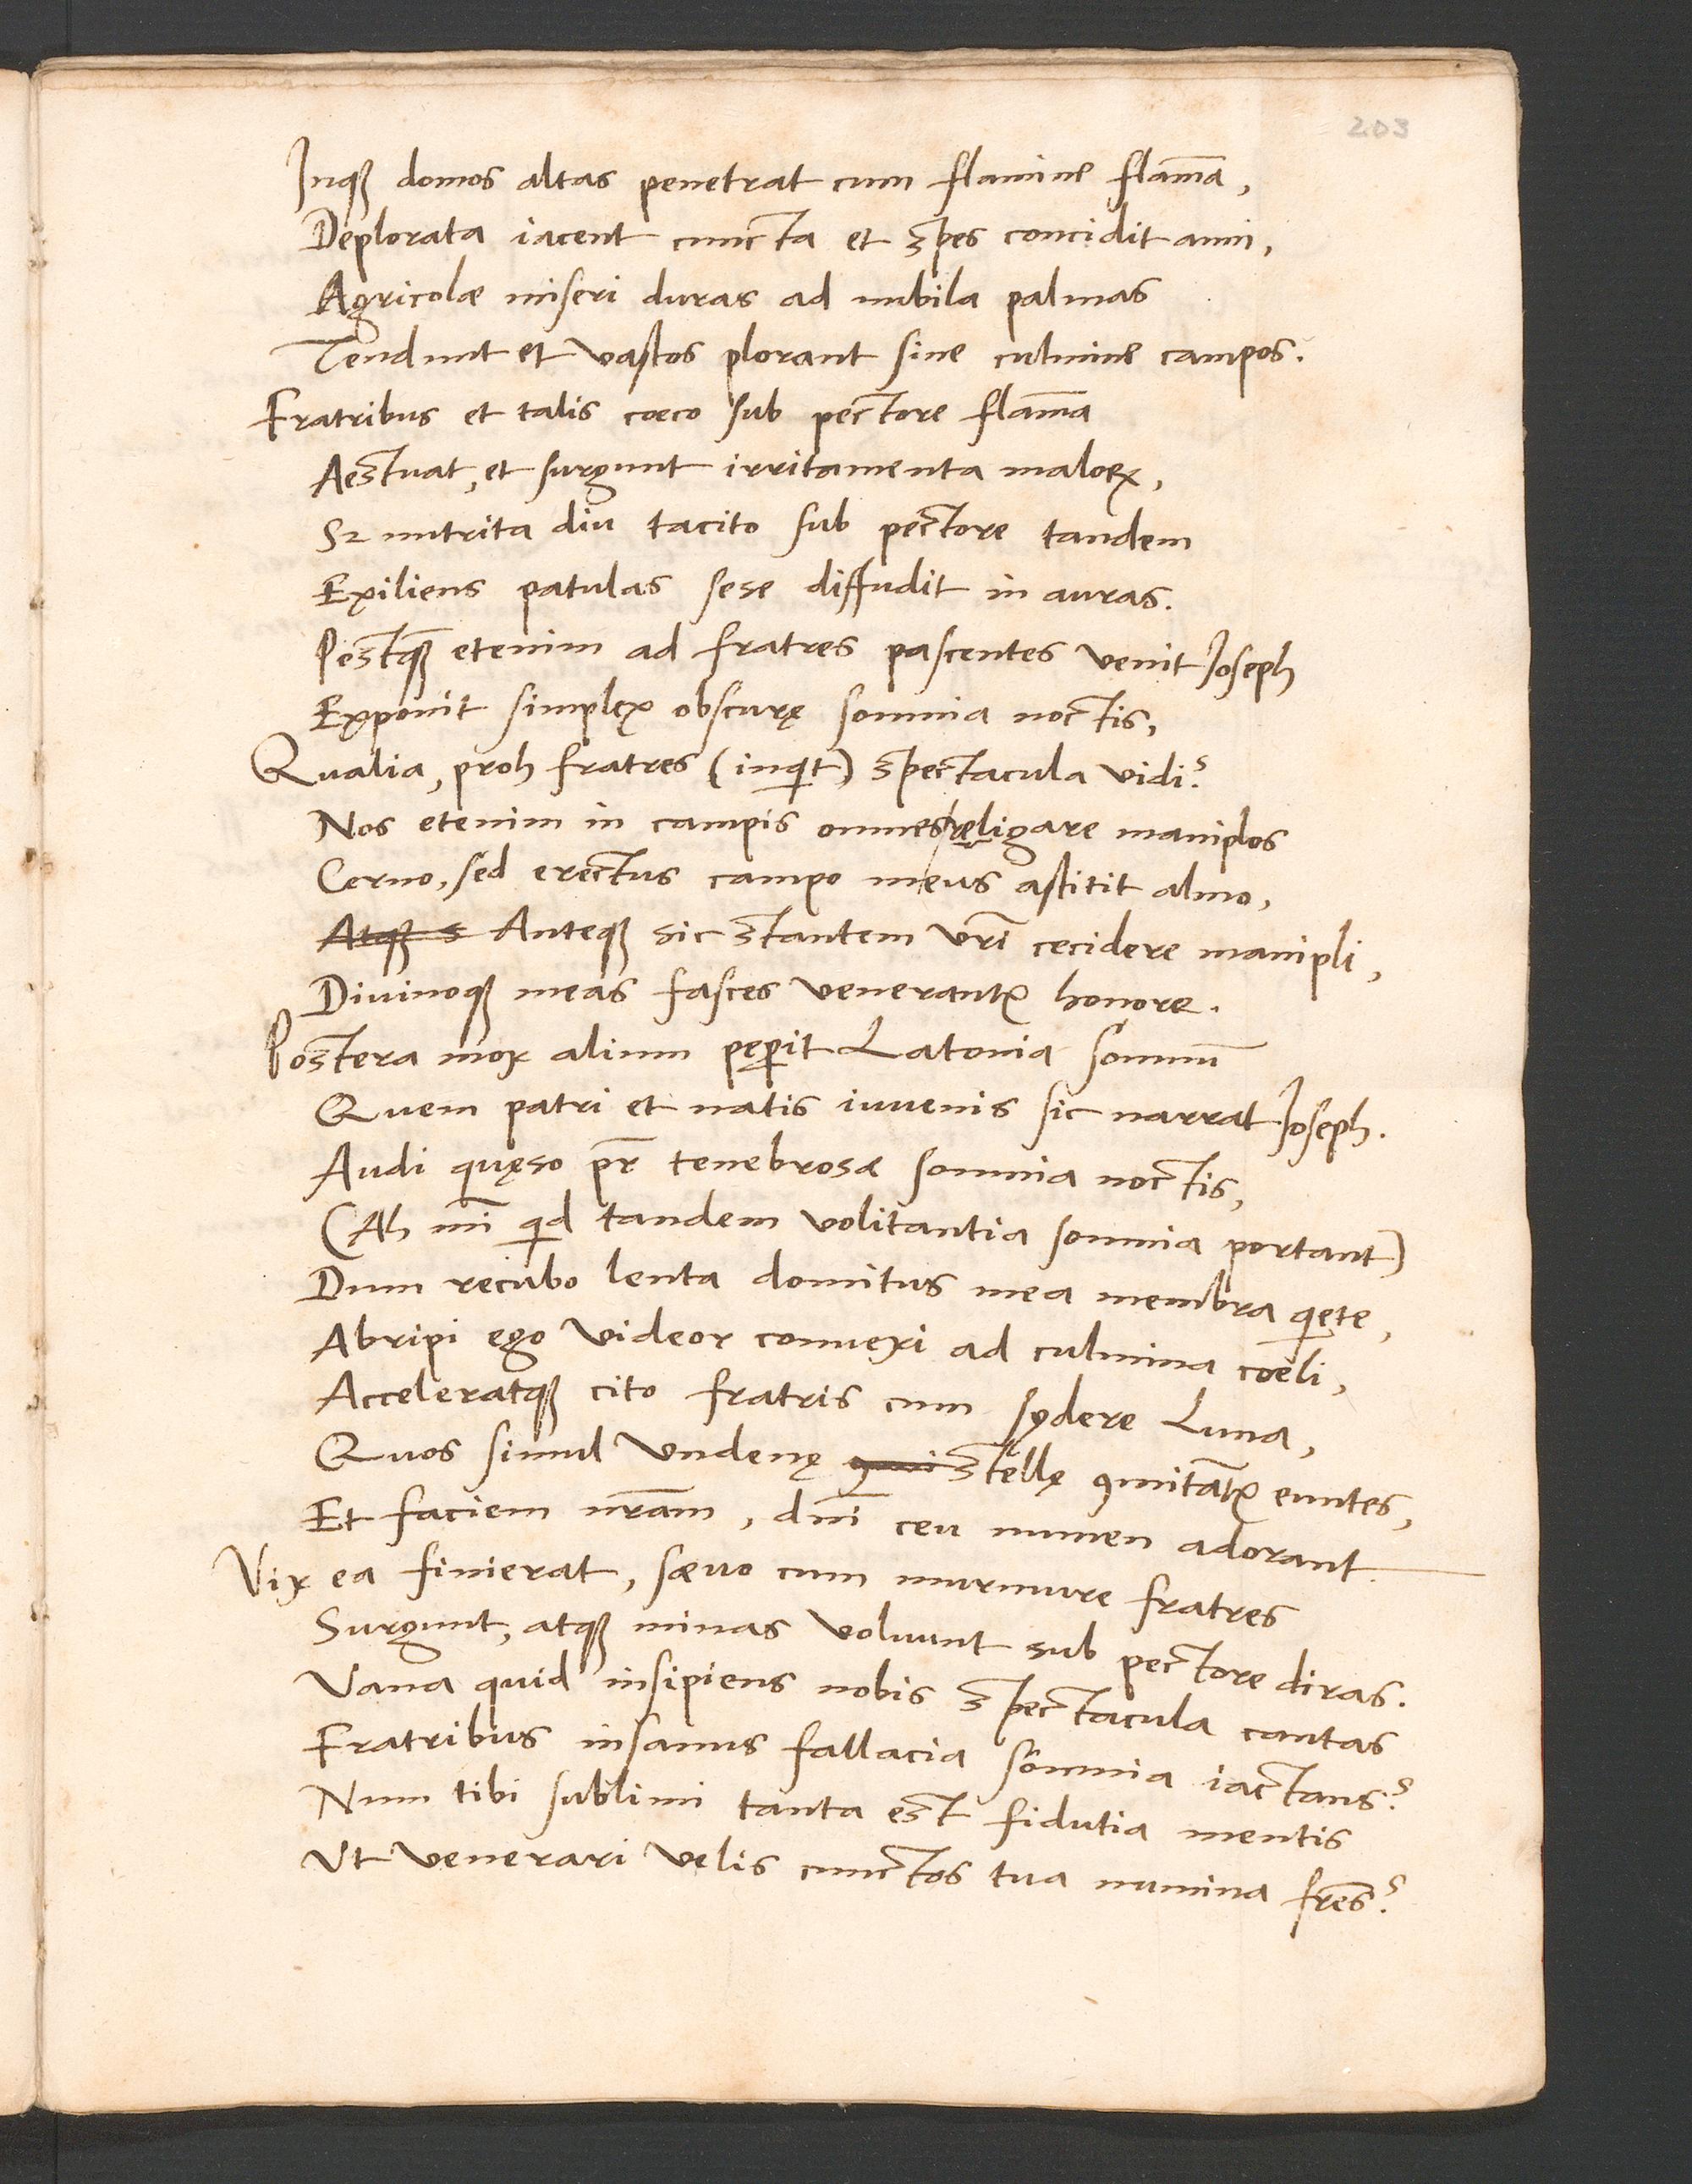 203
Inqꝫ domos altas penetrat cum flamine flam̄a,
Deplorata iacent cuncta et spes concidit anni,
Agricolæ miseri duras ad nubila palmas
Tendunt et vastos plorant sine culmine campos.
Fratribus et talis cœco sub pectore flam̄a
Aestuat, et surgunt irritamenta maloꝝ,
Sꝫ nutrita diu tacito sub pectore tandem
Exiliens patulas sese diffudit in auras.
Postꝙ̄ etenim ad fratres pascentes venit Joseph
Exponit simplex obscurę somnia noctis,
Qualia, proh fratres (inqͥt) spectacula vidi?
Nos etenim in campis omnes religare maniplos
Cerno, sed erectus campo meus astitit almo,
Atqꝫ s Anteqꝫ sic stantem vr̄i cecidere manipli,
Diuinoqꝫ meas fasces venerantꝛ honore.
Postera mox alium peꝑit Latonia somnū
Quem patri et natis iuuenis sic narrat Joseph.
Audi quęso pr̄ tenebrosæ somnia noctis,
(Ah mī qͥd tandem volitantia somnia portant)
Dum recubo lenta domitus mea membra qͥete,
Abripi ego videor conuexi ad culmina cœli,
Acceleratqꝫ cito fratris cum sydere Luna,
Quos simul vndenę stellę ꝯmitātꝛ euntes,
Et faciem nr̄am, dn̄i ceu numen adorant.
Vix ea finierat, sæuo cum murmure fratres
Surgunt, atqꝫ minas voluunt sub pectore diras.
Vana quid insipiens nobis spectacula cantas
Fratribus insanus fallacia somnia iactans?
Num tibi sublimi tanta est fidutia mentis
Vt venerari velis cunctos tua numina fr̄es?